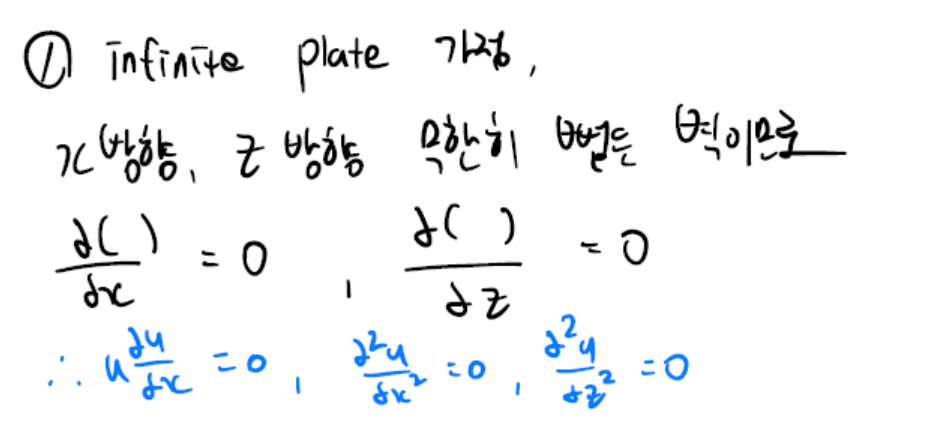 ① infinite plate 가정,
x방향, z 방향 무한히 뻗은 벽이므로
∂( )/∂x = 0 , ∂( )/∂z = 0
∴ u ∂u/∂x = 0 , ∂²u/∂x² = 0 , ∂²u/∂z² = 0